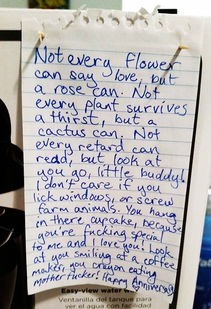 Not every flower
can say love, but
a rose can. Not
every plant survives
a thirst, but a
cactus can. Not
every retard can
read, but look at
you go, little buddy!
I don't care if you
lick windows, or screw
farm animals. You hang
in there cupcake, because
you're fucking special
to me, and I love you! Look
at you smiling at a coffee
maker, you crayon eating
motherfucker! Happy Anniversary
Easy-view water
Ventanilla del tanque para
ver el agua con facilidad